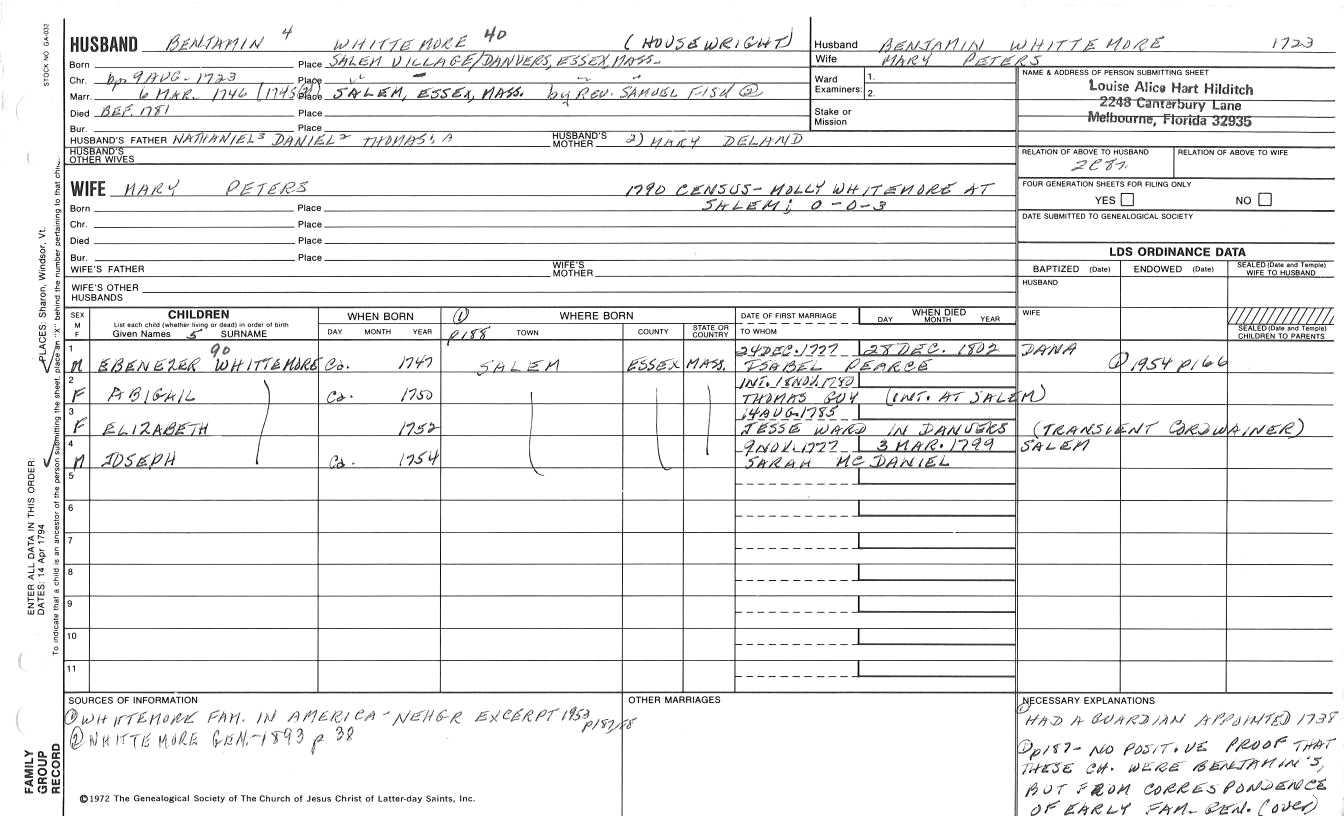 STOCK NO. GA-032
HUSBAND BENJAMIN 4 WHITTEMORE 40 (HOUSEWRIGHT)
Born Place SALEM VILLAGE/DANVERS, ESSEX, MASS.
Chr. bp 9 AUG. 1723 Place " - " "
Marr. 6 MAR. 1746 (1745/6) Place SALEM, ESSEX, MASS. by REV. SAMUEL FISK ②
Died BEF. 1781 Place
Bur. Place
HUSBAND'S FATHER NATHANIEL 3 DANIEL 2 THOMAS 1, A HUSBAND'S MOTHER 2) MARY DELAND
HUSBAND'S OTHER WIVES
Husband BENJAMIN WHITTEMORE 1723
Wife MARY PETERS
Ward Examiners: 1. 2.
Stake or Mission
NAME & ADDRESS OF PERSON SUBMITTING SHEET
Louise Alice Hart Hilditch
2248 Canterbury Lane
Melbourne, Florida 32935
RELATION OF ABOVE TO HUSBAND RELATION OF ABOVE TO WIFE
2C8r.
FOUR GENERATION SHEETS FOR FILING ONLY
YES NO
DATE SUBMITTED TO GENEALOGICAL SOCIETY
WIFE MARY PETERS 1790 CENSUS - MOLLY WHITEMORE AT
Born Place SALEM; 0-0-3
Chr. Place
Died Place
Bur. Place
WIFE'S FATHER WIFE'S MOTHER
WIFE'S OTHER HUSBANDS
LDS ORDINANCE DATA
BAPTIZED (Date) ENDOWED (Date) SEALED (Date and Temple) WIFE TO HUSBAND
HUSBAND
WIFE
SEALED (Date and Temple) CHILDREN TO PARENTS
SEX M F CHILDREN WHEN BORN ① WHERE BORN DATE OF FIRST MARRIAGE WHEN DIED
List each child (whether living or dead) in order of birth
Given Names 5 SURNAME DAY MONTH YEAR p188 TOWN COUNTY STATE OR COUNTRY TO WHOM DAY MONTH YEAR
1 90 24 DEC. 1777 28 DEC. 1802 DANA
M EBENEZER WHITTEMORE Ca. 1747 SALEM ESSEX MASS. ISABEL PEARCE ① 1954 p166
2 INT. 18 NOV. 1780
F ABIGAIL Ca. 1750 THOMAS GUY (INT. AT SALEM)
3 14 AUG. 1785
F ELIZABETH 1752 JESSE WARD IN DANVERS (TRANSIENT CORDWAINER)
4 9 NOV. 1777 3 MAR. 1799 SALEM
M JOSEPH Ca. 1754 SARAH MC DANIEL
5
6
7
8
9
10
11
SOURCES OF INFORMATION
① WHITTEMORE FAM. IN AMERICA - NEHGR EXCERPT 1953 p187/88
② WHITTEMORE GEN. - 1893 p 38
OTHER MARRIAGES
NECESSARY EXPLANATIONS
① HAD A GUARDIAN APPOINTED 1738
① p187 - NO POSITIVE PROOF THAT
THESE CH. WERE BENJAMIN'S,
BUT FROM CORRESPONDENCE
OF EARLY FAM. GEN. (over)
©1972 The Genealogical Society of The Church of Jesus Christ of Latter-day Saints, Inc.
FAMILY GROUP RECORD
ENTER ALL DATA IN THIS ORDER:
DATES: 14 Apr 1794
PLACES: Sharon, Windsor, Vt.
To indicate that a child is an ancestor of the person submitting the sheet, place an "X" behind the number pertaining to that